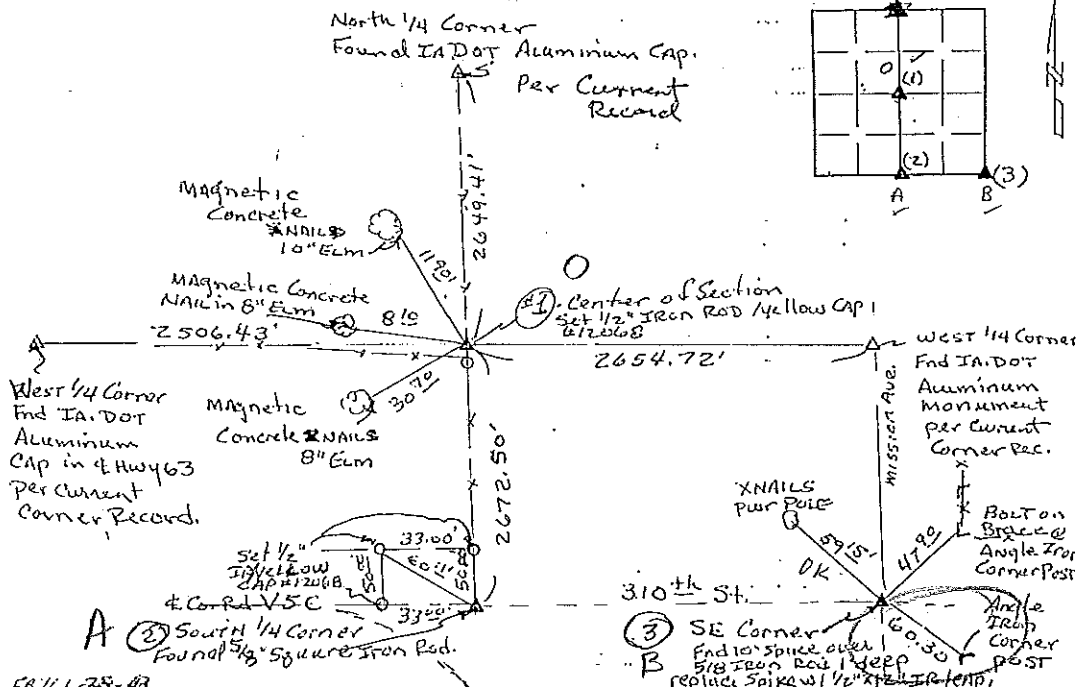 North 1/4 Corner
Found IA DOT Aluminium CAP.
Per Current
Record
O
(1)
(2)
(3)
A
B
2649.41'
MAgnetic
Concrete
XNAILS
10" ELm
11.90'
MAgnetic Concrete
NAIL in 8" ELm
8.10
2506.43'
O
#1 Center of Section
Set 1/2" IRon ROD /yellow CAP
#12068
2654.72'
West 1/4 Corner
Fnd IA.DOT
Aluminum
Monument
per Current
Corner Rec.
West 1/4 Corner
Fnd IA.DOT
Aluminum
CAP in ℄ Hwy 63
per Current
Corner Record.
MAgnetic
Concrete XNAILS
8" ELm
30.70
2672.50'
Mission Ave.
XNAILS
PWR POLE
59.15'
OK
47.90
BOLT on
Brace @
Angle Iron
Corner Post
Set 1/2"
IR/yellow
CAP #12068
33.00'
60.11'
50.12
33.00'
℄ Co. Rd. V5C
310th St.
A
2 South 1/4 Corner
Found 5/8" Square Iron Rod.
3 SE Corner
B
Fnd 10" Spike over
5/8 IRon Rod 1' deep
replace Spike w/ 1/2" X 12" IR/CAP,
60.30
Angle
Iron
Corner
post